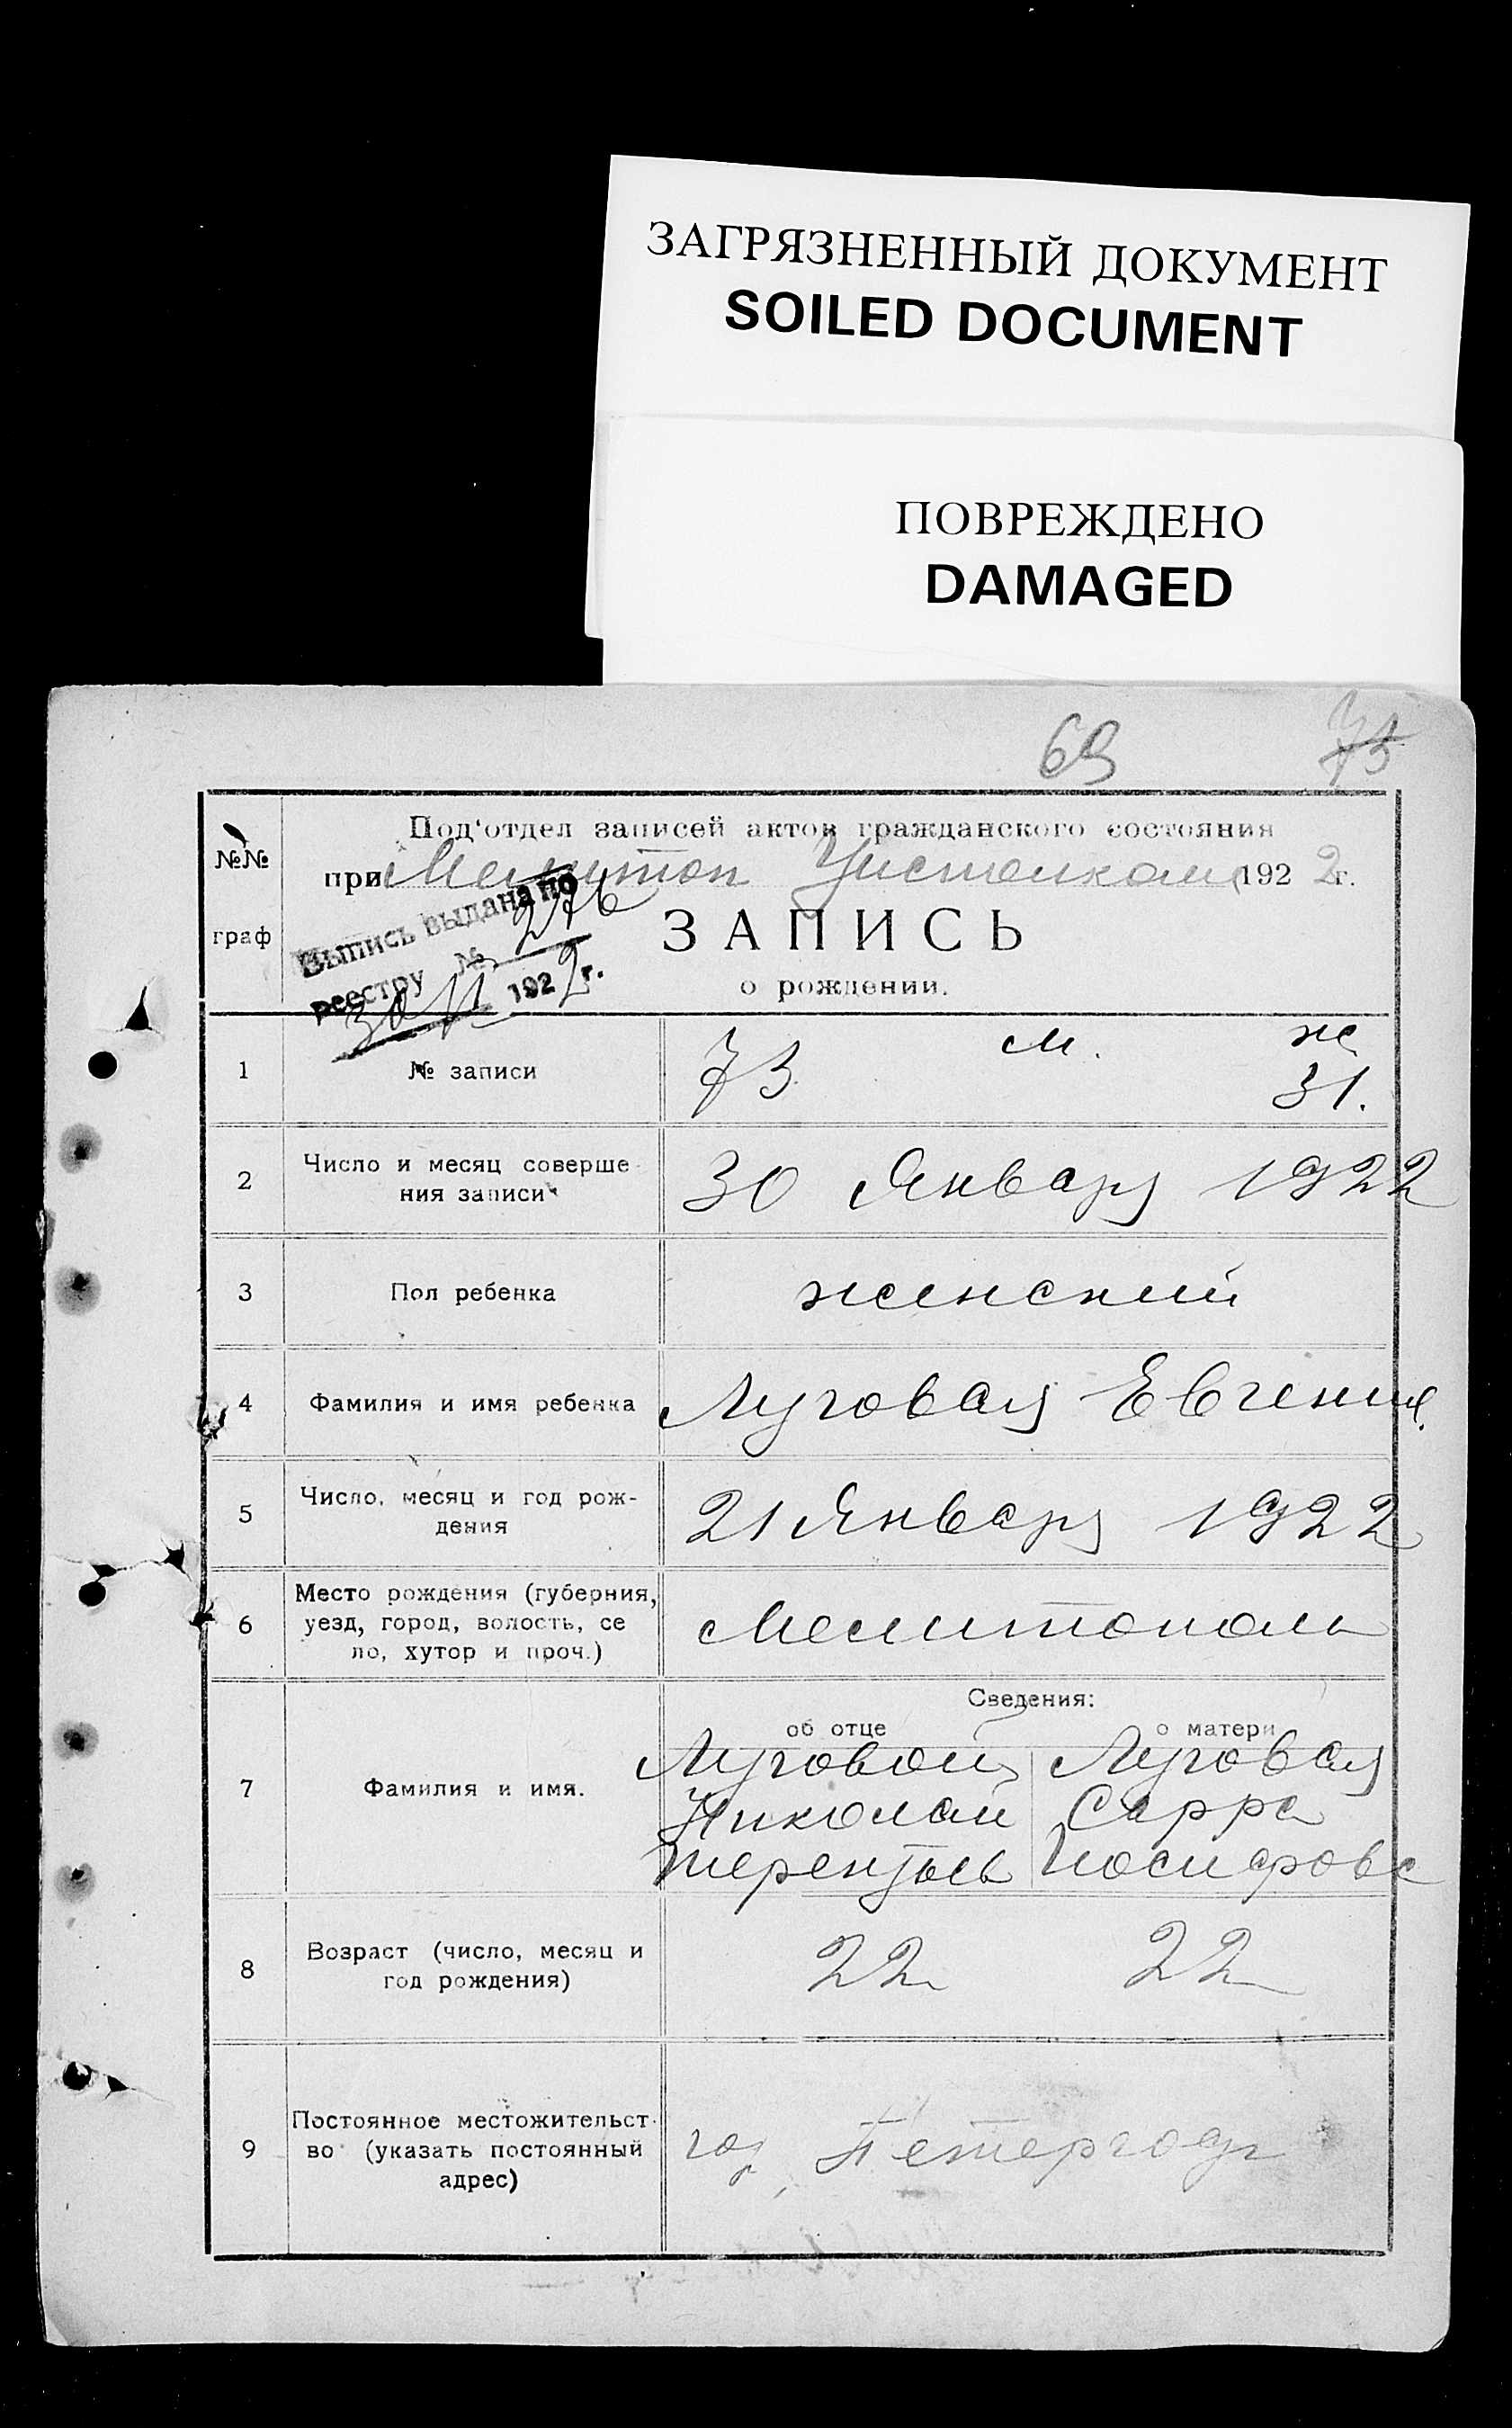 ЗАГРЯЗНЕННЫЙ ДОКУМЕНТ
SOILED DOCUMENT
ПОВРЕЖДЕНО
DAMAGED
69 73
№№
граф
Под'отдел записей актов гражданского состояния
при Мелитоп Уисполкоме 1922 г.
Выпись выдана по
реестру № 276
30 1922 г.
ЗАПИСЬ
о рождении.
м. ж
1 № записи 73 31.
2 Число и месяц соверше
ния записи 30 Января 1922
3 Пол ребенка женский
4 Фамилия и имя ребенка Луговая Евгения
5 Число, месяц и год рож-
дения 21 Января 1922
6 Место рождения (губерния,
уезд, город, волость, се
ло, хутор и проч.) Мелитополь
Сведения:
об отце о матери
7 Фамилия и имя. Луговой Луговая
Николай Сарра
Терентьев Иосифова
8 Возраст (число, месяц и
год рождения) 22 22
9 Постоянное местожительст-
во (указать постоянный
адрес) гор. Петергоф